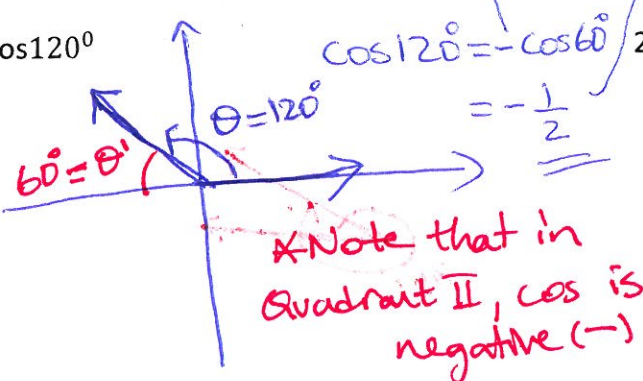 os120⁰
cos120° = -cos60°
2
= -1/2
θ=120°
60°=θ'
*Note that in
Quadrant II, cos is
negative (-)